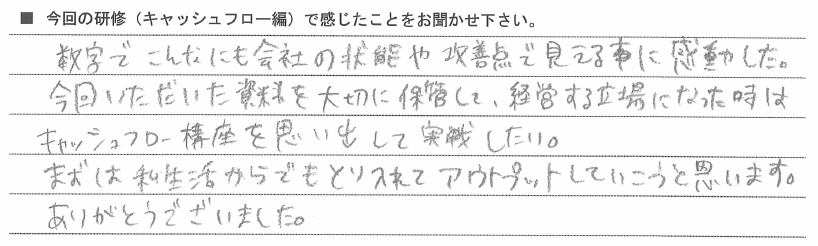 ■ 今回の研修（キャッシュフロー編）で感じたことをお聞かせ下さい。
数字でこんなにも会社の状態や改善点で見える事に感動した。
今回いただいた資料を大切に保管して、経営する立場になった時は
キャッシュフロー講座を思い出して実戦したい。
まずは私生活からでもとり入れてアウトプットしていこうと思います。
ありがとうございました。